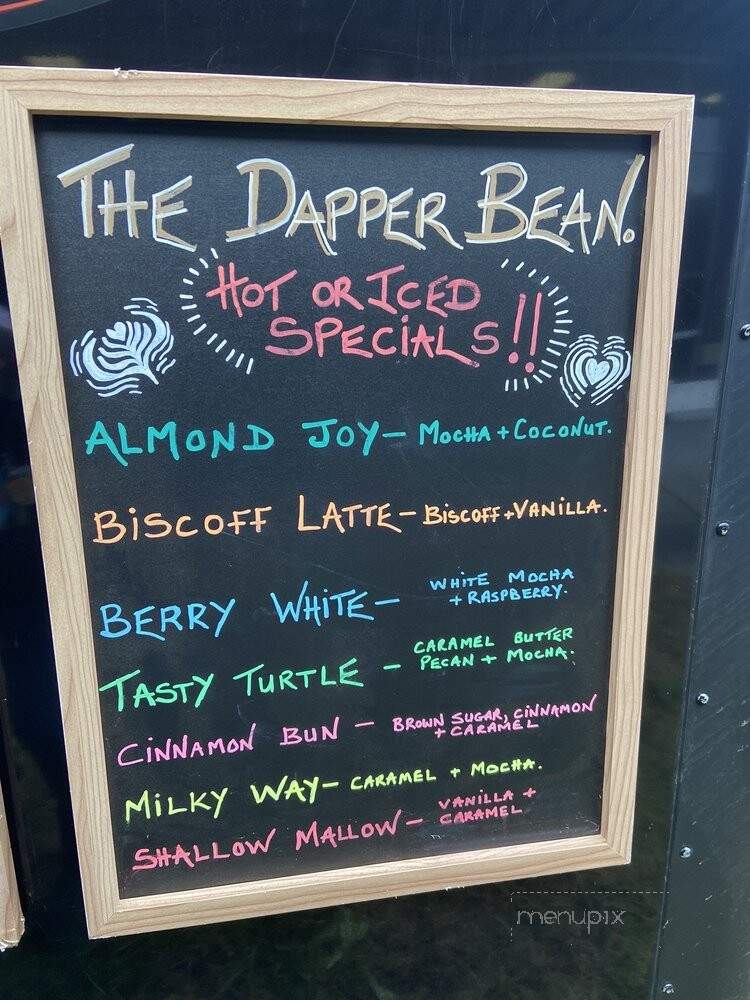 THE DAPPER BEAN.
HOT OR ICED
SPECIALS!!
ALMOND JOY - MOCHA + COCONUT.
BISCOFF LATTE - BISCOFF + VANILLA.
BERRY WHITE - WHITE MOCHA
+ RASPBERRY.
TASTY TURTLE - CARAMEL BUTTER
PECAN + MOCHA.
CINNAMON BUN - BROWN SUGAR, CINNAMON
+ CARAMEL
MILKY WAY - CARAMEL + MOCHA.
SHALLOW MALLOW - VANILLA +
CARAMEL
menupix